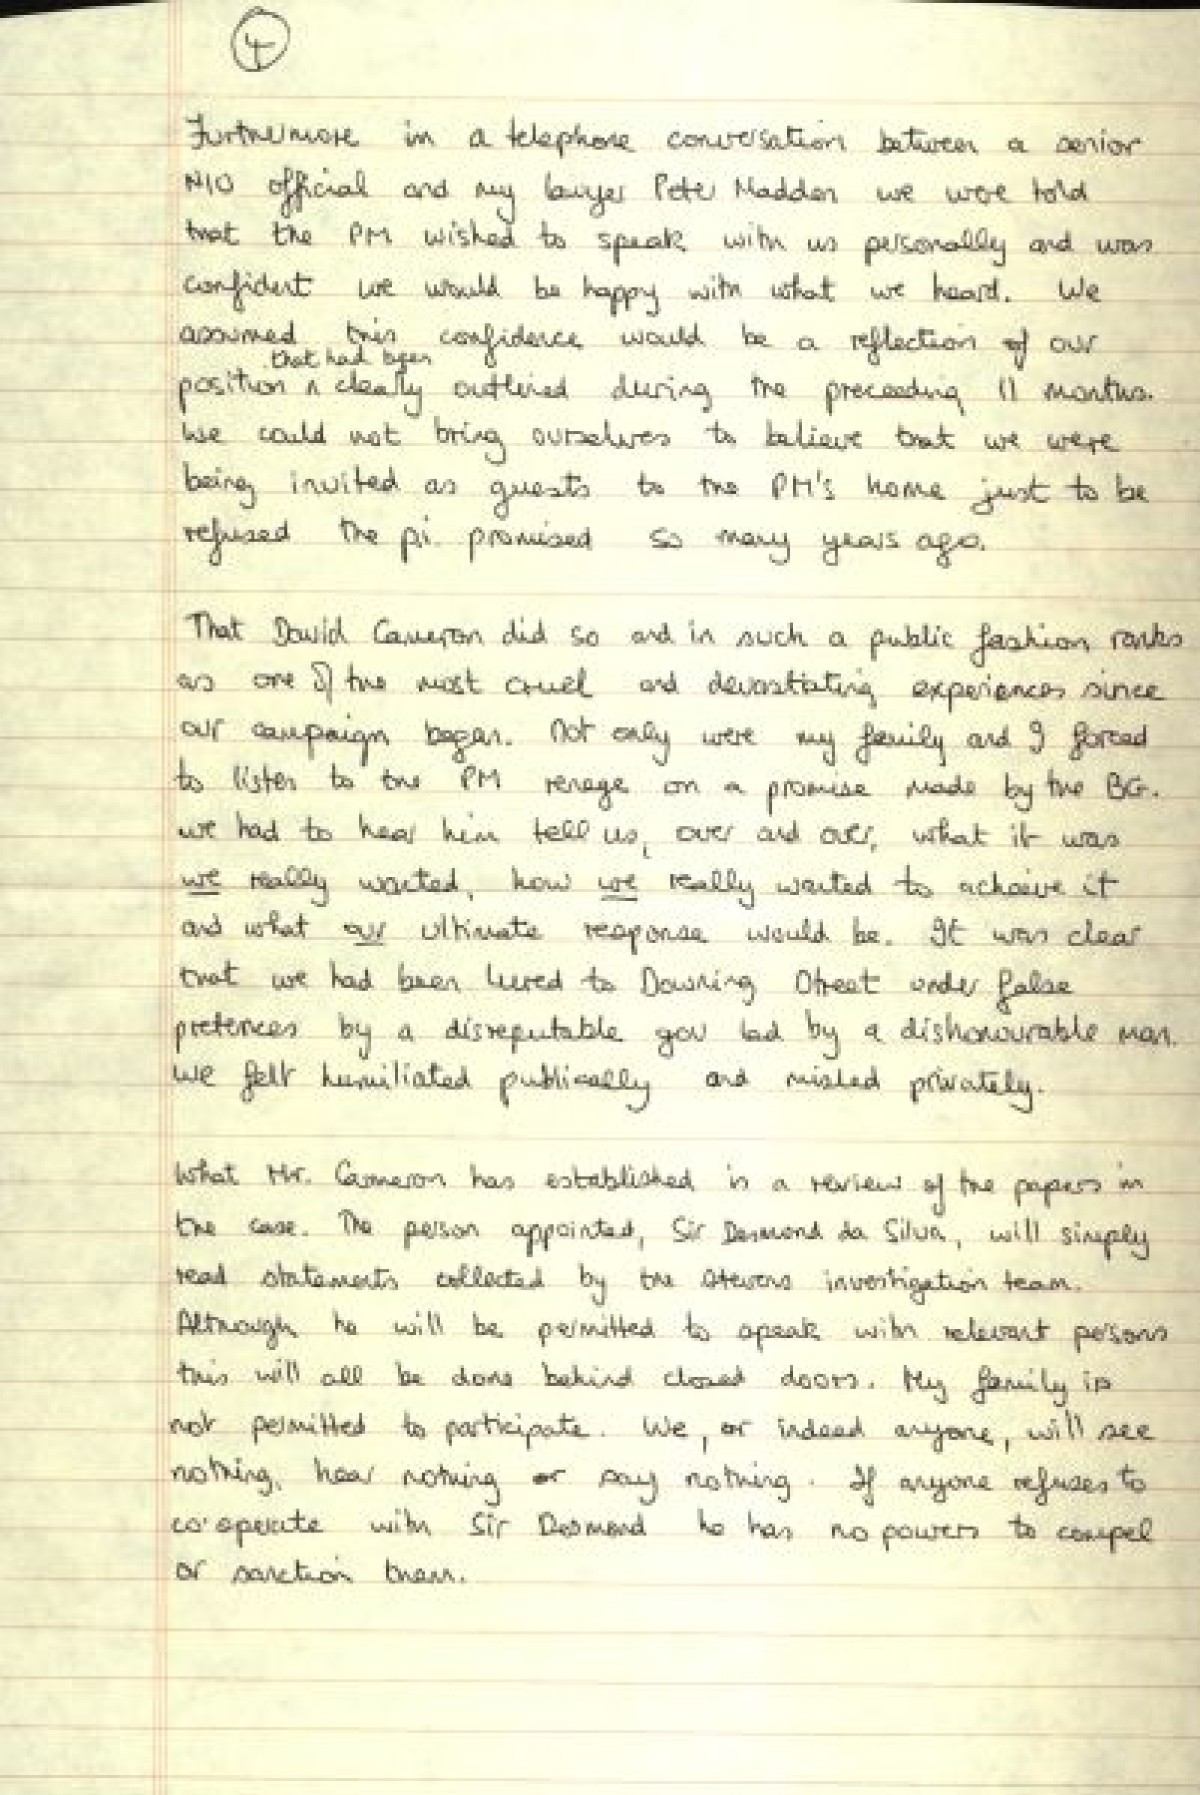 4
Furthermore in a telephone conversation between a senior
NIO official and my lawyer Peter Madden we were told
that the PM wished to speak with us personally and was
confident we would be happy with what we heard. We
assumed this confidence would be a reflection of our
that had been
position ^ clearly outlined during the preceeding 11 months.
We could not bring ourselves to believe that we were
being invited as guests to the PM's home just to be
refused the p.i. promised so many years ago.
That David Cameron did so and in such a public fashion ranks
as one of the most cruel and devastating experiences since
our campaign began. Not only were my family and I forced
to listen to the PM renege on a promise made by the BG.
we had to hear him tell us, over and over, what it was
we really wanted, how we really wanted to acheive it
and what our ultimate response would be. It was clear
that we had been lured to Downing Street under false
pretences by a disreputable gov led by a dishonourable man.
We felt humiliated publically and misled privately.
What Mr. Cameron has established is a review of the papers in
the case. The person appointed, Sir Desmond da Silva, will simply
read statements collected by the Stevens investigation team.
Although he will be permitted to speak with relevant persons
this will all be done behind closed doors. My family is
not permitted to participate. We, or indeed anyone, will see
nothing, hear nothing or say nothing. If anyone refuses to
co-operate with Sir Desmond he has no powers to compel
or sanction them.